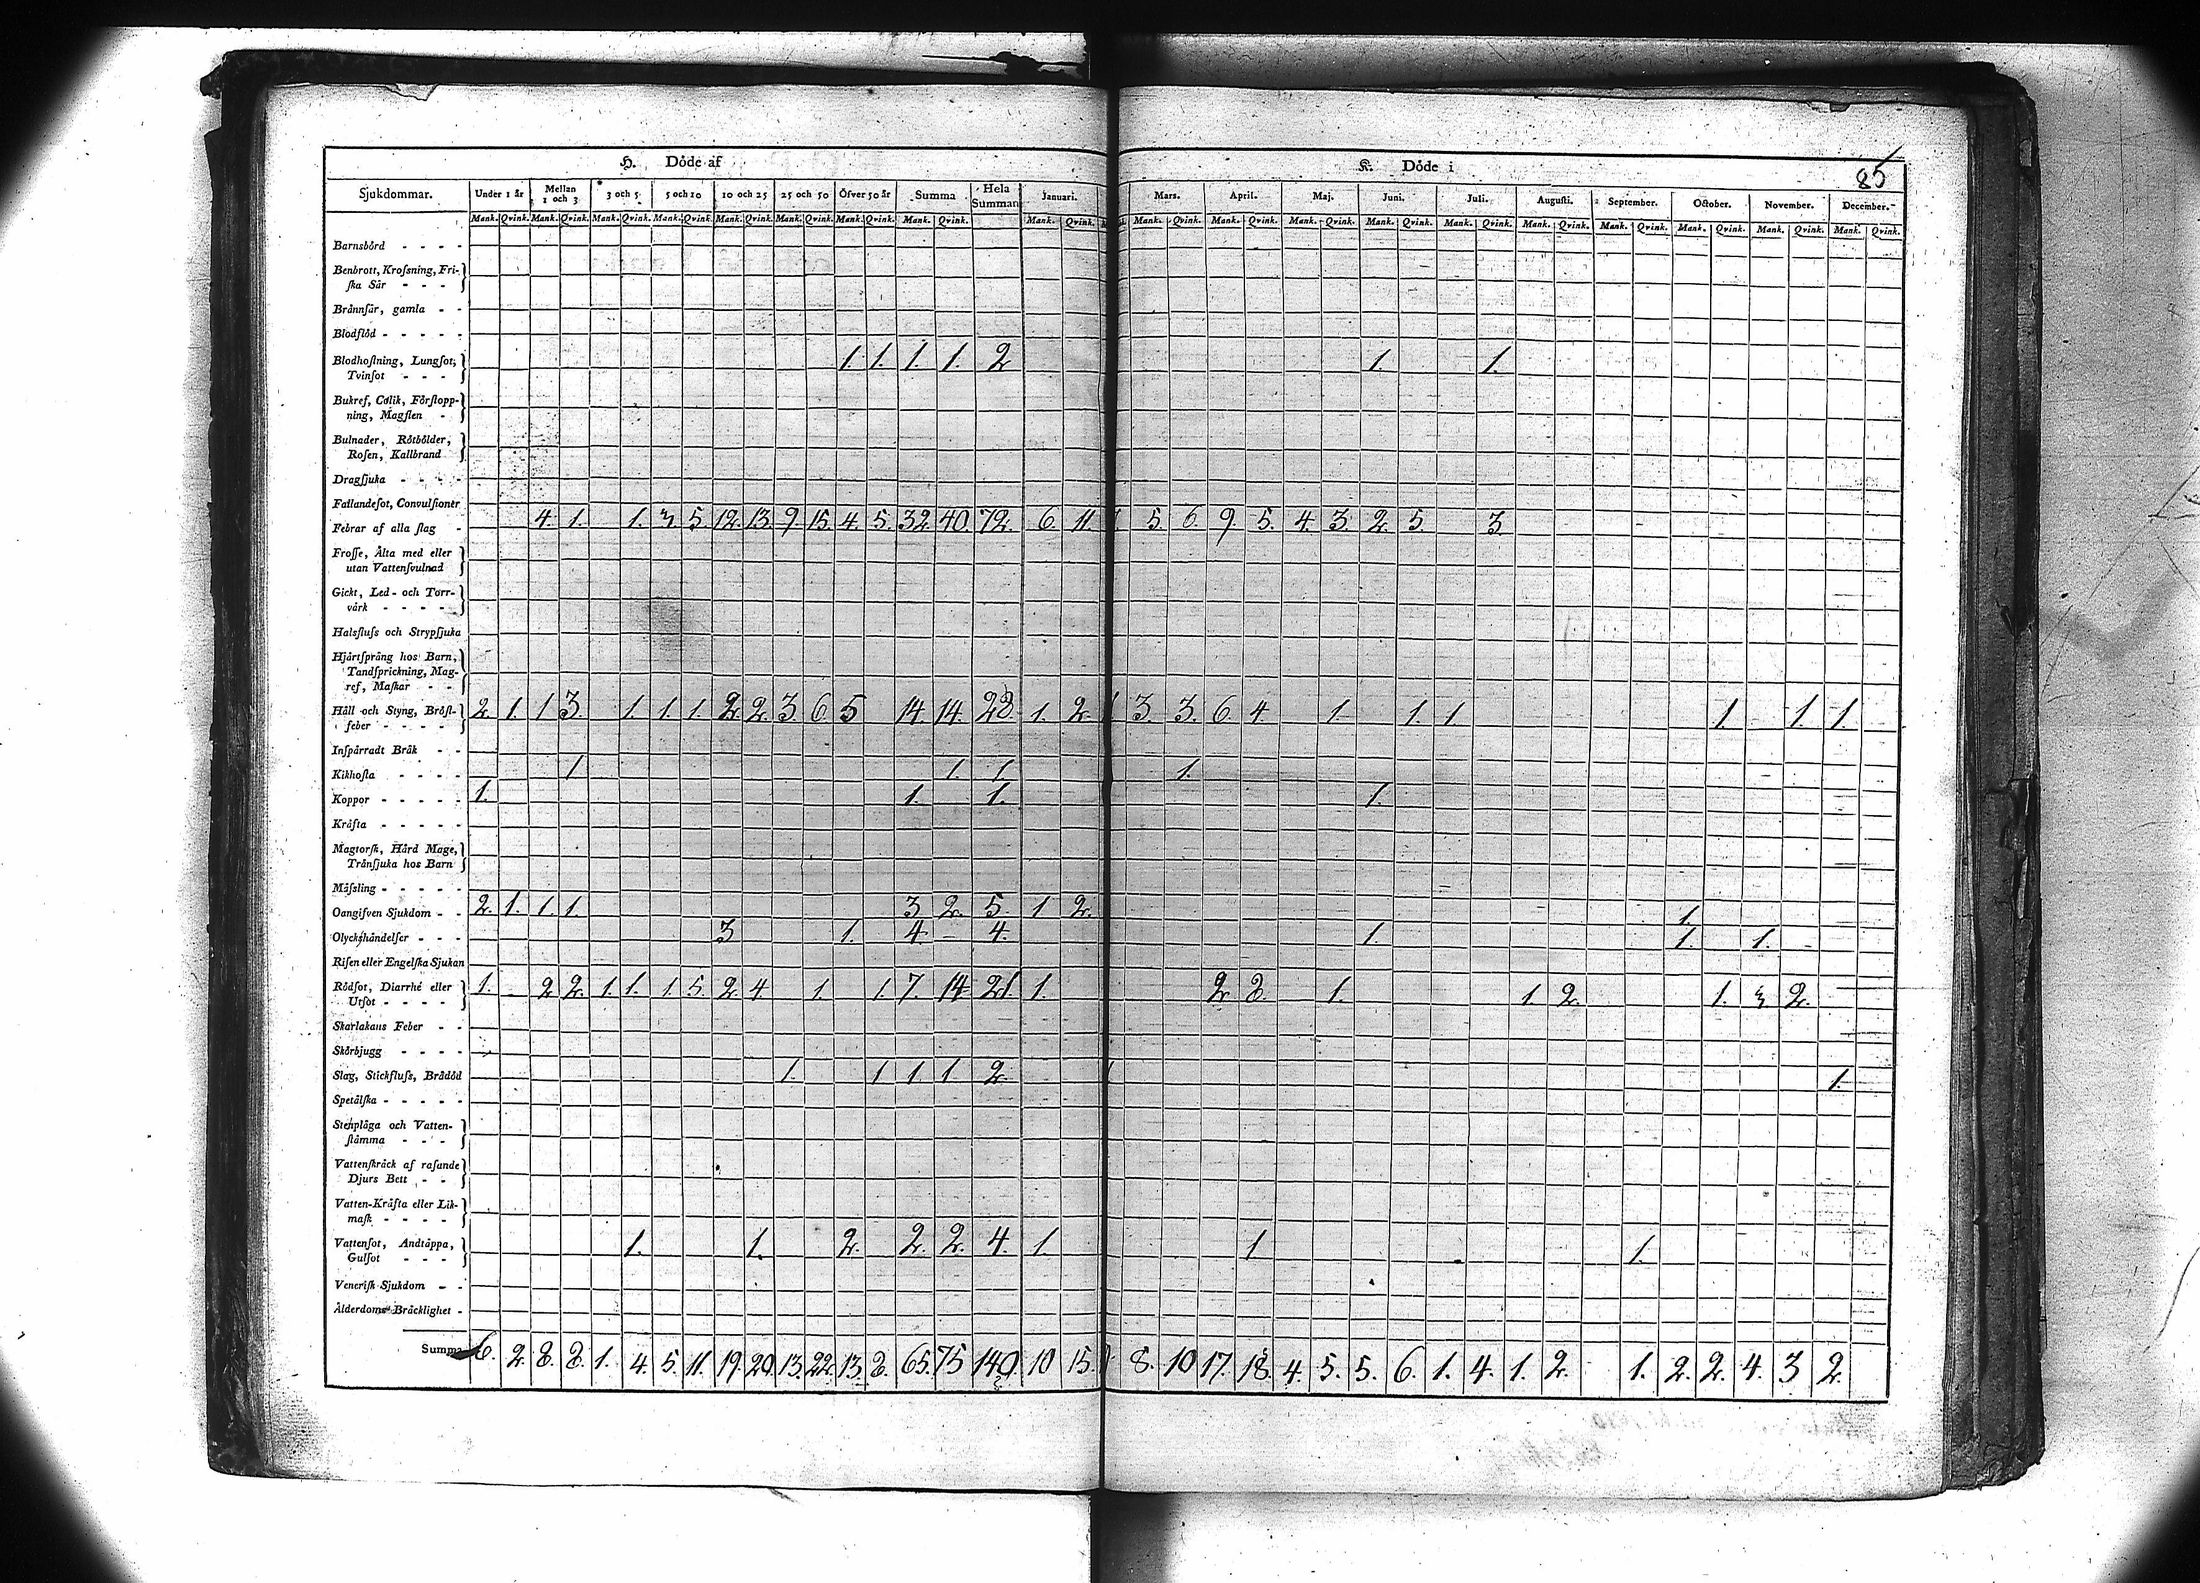 H. Döde af K. Döde i 85
Sjukdommar. Under 1 år Mellan 1 och 3 3 och 5 5 och 10 10 och 25 25 och 50 Öfver 50 år Summa Hela Summan Januari. Mars. April. Maj. Juni. Juli. Augusti. September. October. November. December.
Mank. Qvink. Mank. Qvink. Mank. Qvink. Mank. Qvink. Mank. Qvink. Mank. Qvink. Mank. Qvink. Mank. Qvink. Mank. Qvink. Mank. Qvink. Mank. Qvink. Mank. Qvink. Mank. Qvink. Mank. Qvink. Mank. Qvink. Mank. Qvink. Mank. Qvink. Mank. Qvink. Mank. Qvink.
Barnsbörd
Benbrott, Krofsning, Fri-
ſka Sår
Brånnſår, gamla
Blodflöd
Blodhoſtning, Lungſot, 1. 1. 1. 1. 2 1. 1.
Tvinſot
Bukref, Colik, Förſtopp-
ning, Magſten
Bulnader, Rötbölder,
Roſen, Kallbrand
Dragſjuka
Fallandeſot, Convulſioner
Febrar af alla ſlag 4. 1. 1. 3. 5. 12. 13. 9. 15. 4. 5. 32. 40. 72. 6. 11. 5. 6. 9. 5. 4. 3. 2. 5. 3.
Froſſe, Ålta med eller
utan Vattenſvulnad
Gickt, Led- och Torr-
vårk
Halsfluſs och Strypſjuka
Hjårtſprång hos Barn,
Tandſprickning, Mag-
ref, Maſkar
Håll och Styng, Bröſt- 2. 1. 1 3. 1. 1. 1. 2 2. 3. 6. 5 14. 14. 28. 1. 2. 3. 3. 6. 4. 1. 1. 1 1. 1 1.
feber
Inſpårradt Bråk
Kikhoſta 1 1. 1. 1.
Koppor 1. 1. 1. 1.
Kråfta
Magtorſk, Hård Mage,
Trånſjuka hos Barn
Måſsling
Oangifven Sjukdom 2. 1. 1. 1. 3 2. 5. 1 2. 1.
Olyckshåndelſer 3 1. 4 4. 1. 1. 1.
Riſen eller Engelſka Sjukan
Rödſot, Diarrhé eller 1. 2 2. 1. 1. 1. 5. 2. 4 1. 1. 7. 14 21. 1. 2 8. 1. 1. 2. 1. 3 2.
Utſot
Skarlakans Feber
Skörbjugg
Slag, Stickfluſs, Brådöd 1. 1 1. 1. 2. 1.
Spetålſka
Stenplåga och Vatten-
ſtåmma
Vattenſkråck af raſande
Djurs Bett
Vatten-Kråfta eller Lik-
maſk
Vattenſot, Andtåppa, 1. 1. 2. 2. 2. 4. 1. 1 1.
Gulſot
Veneriſk Sjukdom
Ålderdoms Bråcklighet
Summa 6. 2. 8. 8. 1. 4. 5. 11. 19. 20. 13. 22. 13. 8. 65. 75 140. 10 15. 8. 10 17. 18. 4. 5. 5. 6. 1. 4. 1. 2. 1. 2. 2. 4. 3 2.